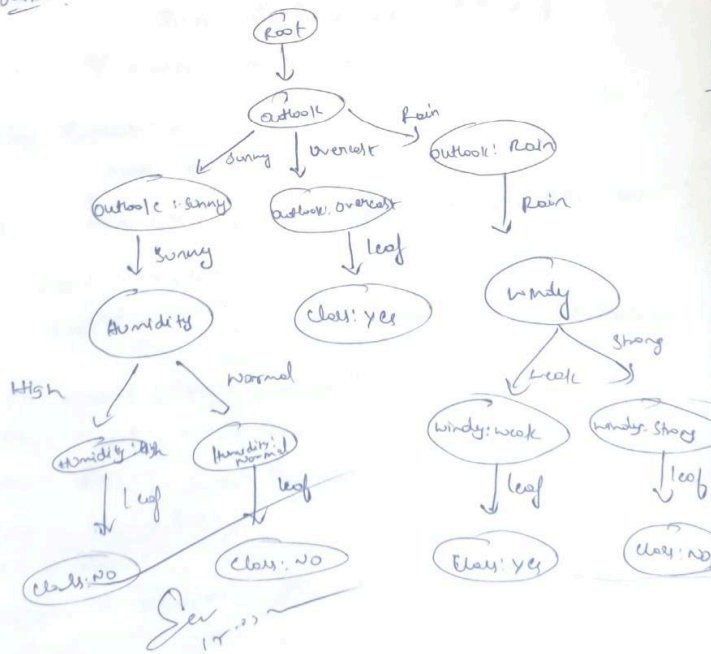 Root
Outlook
Sunny
Overcast
Rain
Outlook: Sunny
Outlook: Overcast
Outlook: Rain
Sunny
leaf
Rain
Humidity
Class: Yes
Windy
High
Normal
Weak
Strong
Humidity: High
Humidity: Normal
Windy: Weak
Windy: Strong
leaf
leaf
leaf
leaf
Class: NO
Class: NO
Class: Yes
Class: NO